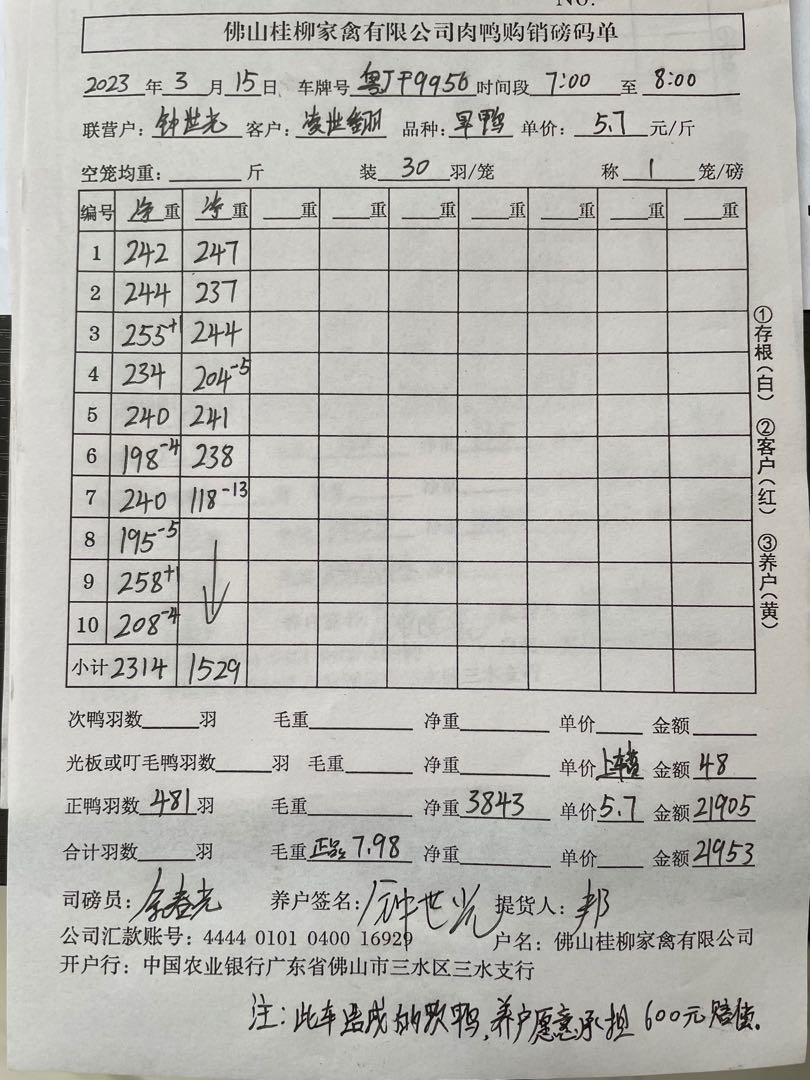 No.
佛山桂柳家禽有限公司肉鸭购销磅码单
2023 年 3 月 15 日 车牌号 粤JF9956 时间段 7:00 至 8:00
联营户: 钟世光 客户: 凌世翻 品种: 旱鸭 单价: 5.7 元/斤
空笼均重: 斤 装 30 羽/笼 称 1 笼/磅
编号 净重 净重 重 重 重 重 重 重 重
1 242 247
2 244 237
3 255+1 244
4 234 204-5
5 240 241
6 198-4 238
7 240 118-13
8 195-5
9 258+1
10 208-4
小计 2314 1529
①存根(白) ②客户(红) ③养户(黄)
次鸭羽数 羽 毛重 净重 单价 金额
光板或叮毛鸭羽数 羽 毛重 净重 单价 上车费 金额 48
正鸭羽数 481 羽 毛重 净重 3843 单价 5.7 金额 21905
合计羽数 羽 毛重 正品: 7.98 净重 单价 金额 21953
司磅员: 余春光 养户签名: 钟世光 提货人: 邦
公司汇款账号: 4444 0101 0400 16929 户名: 佛山桂柳家禽有限公司
开户行: 中国农业银行广东省佛山市三水区三水支行
注: 此车造成的死鸭, 养户愿意承担 600元赔偿.